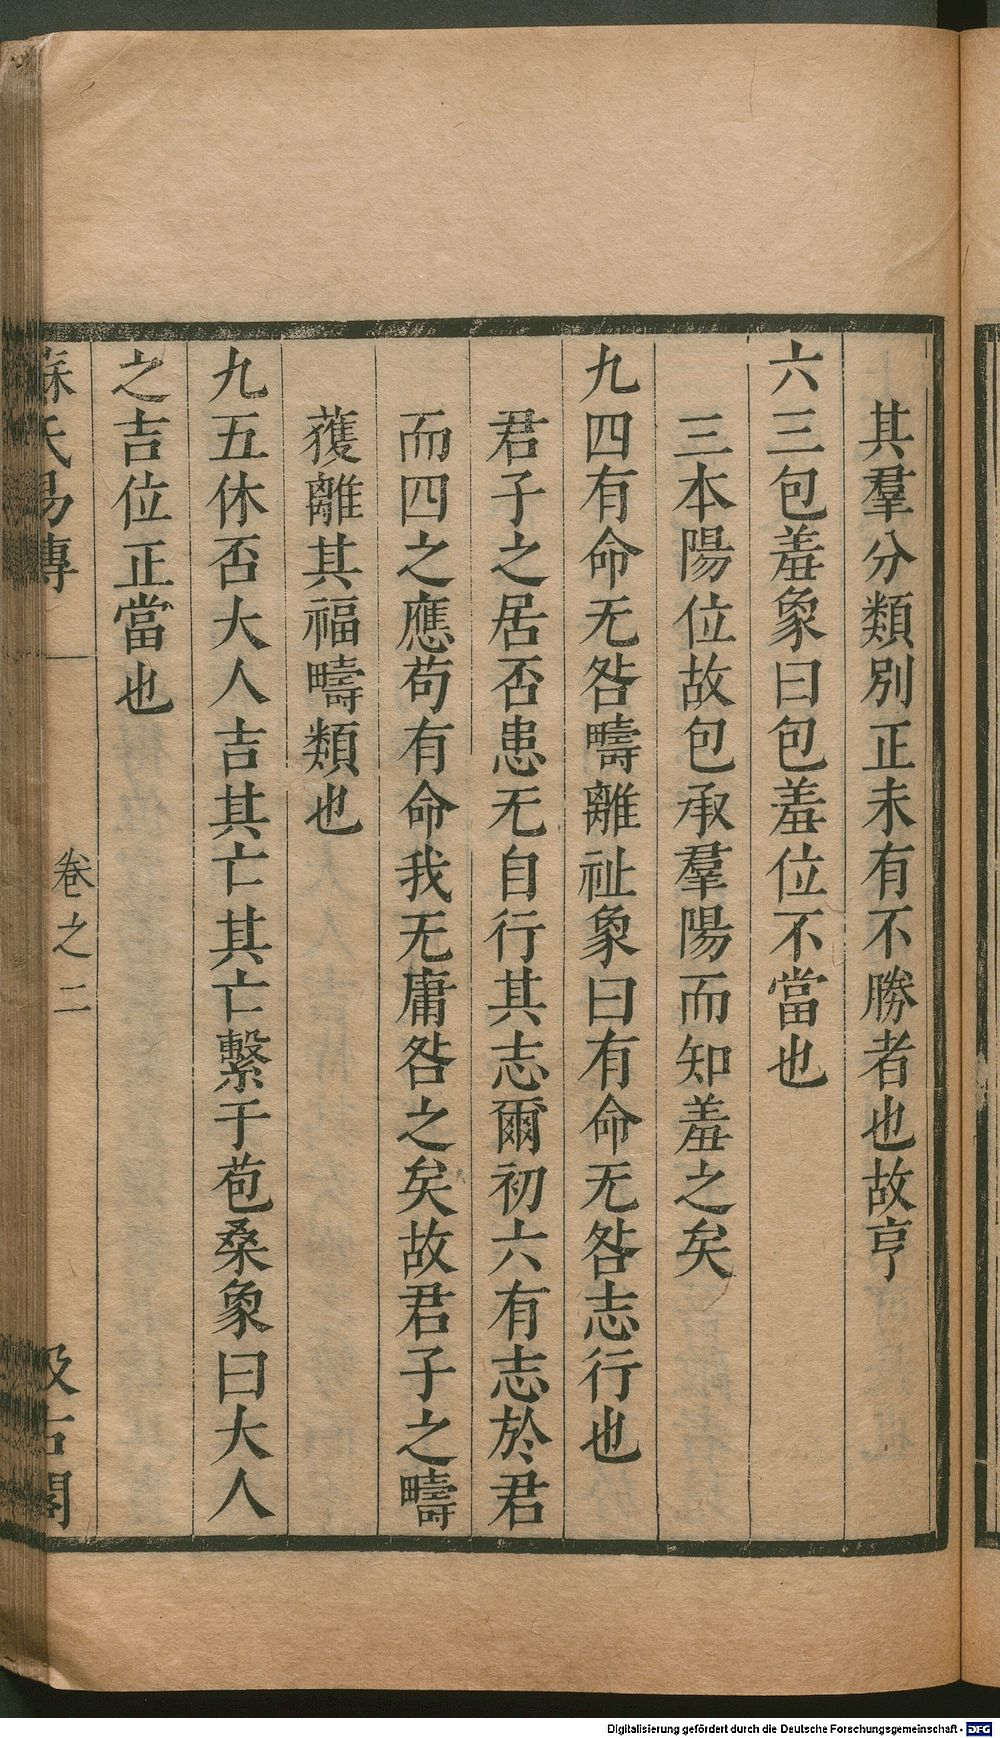 其羣分類別正未有不勝者也故亨
六三包羞象曰包羞位不當也
三本陽位故包承羣陽而知羞之矣
九四有命无咎疇離祉象曰有命无咎志行也
君子之居否患无自行其志爾初六有志於君
而四之應苟有命我无庸咎之矣故君子之疇
獲離其福疇類也
九五休否大人吉其亡其亡繫于苞桑象曰大人
之吉位正當也
蘇氏易傳
卷之二
汲古閣
Digitalisierung gefördert durch die Deutsche Forschungsgemeinschaft - DFG